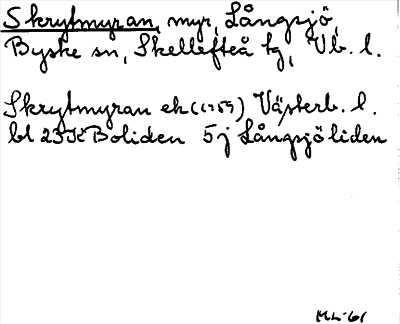 Skrytmyran, myr, Långsjö,
Byske sn, Skellefteå tg, Vb. l.
Skrytmyran ek (1959) Västerb. l.
bl 23K Boliden 5j Långsjöliden